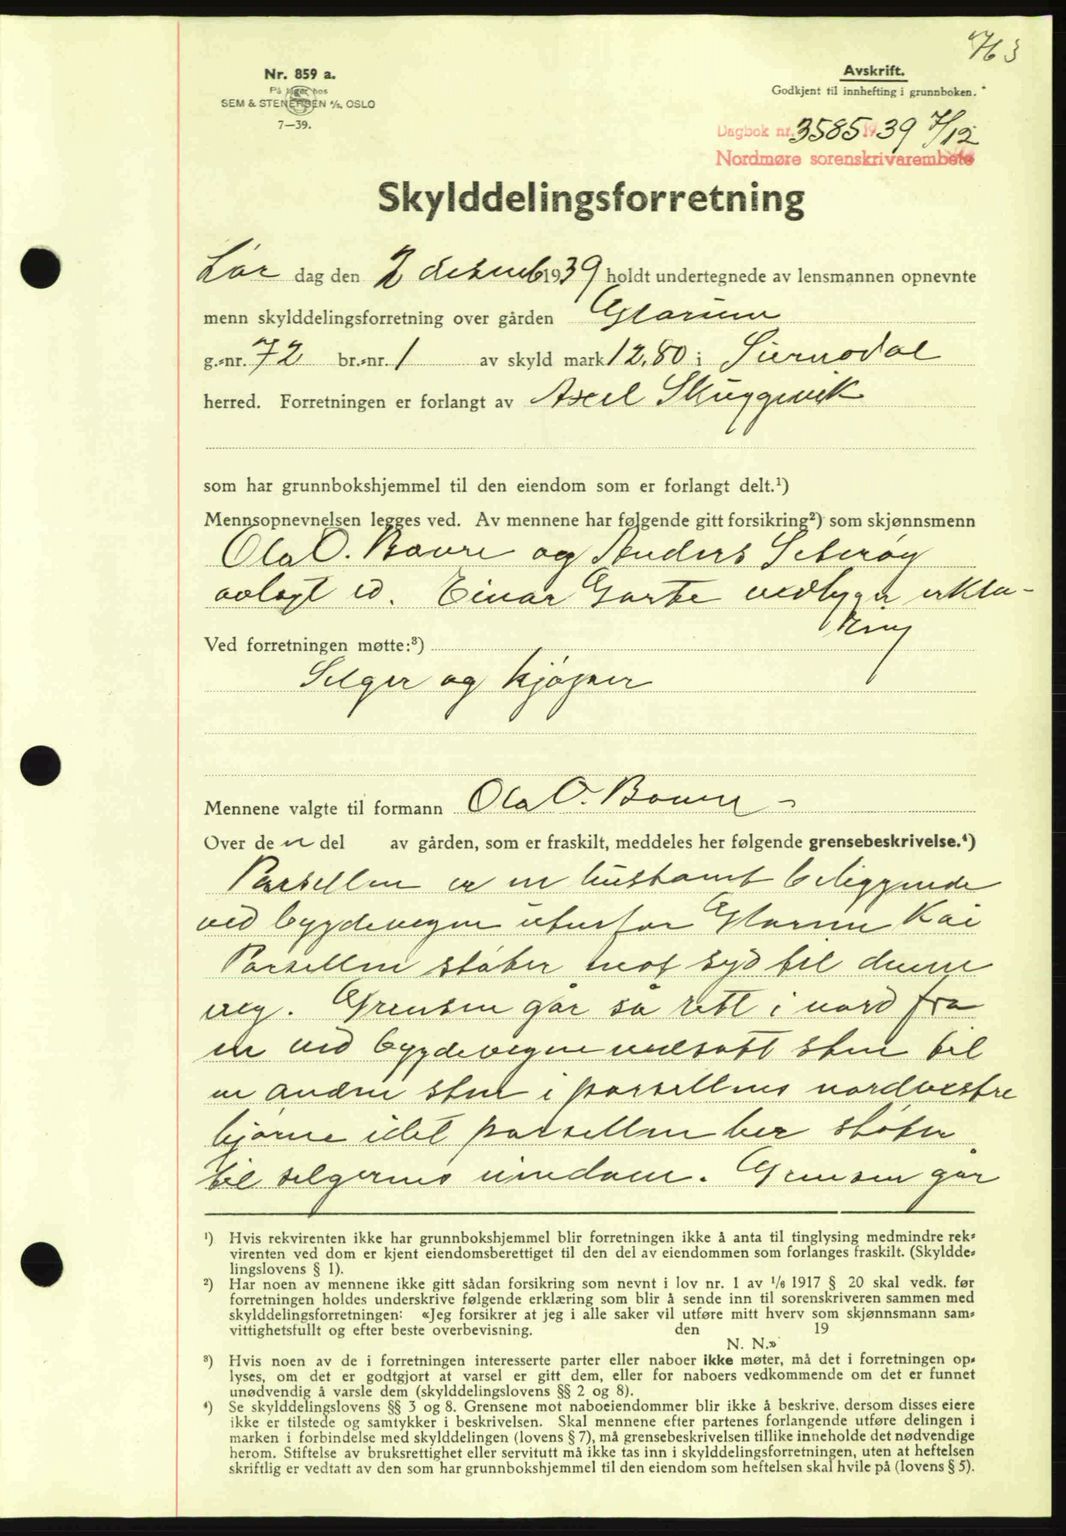 763
Nr. 859 a.
På lager hos
SEM & STENERSEN A/S, OSLO
7—39.
Avskrift.
Godkjent til innhefting i grunnboken.
Dagbok nr. 3585 1939 7/12
Nordmøre sorenskrivarembete
Skylddelingsforretning
Lør dag den 2 desemb 1939 holdt undertegnede av lensmannen opnevnte
menn skylddelingsforretning over gården Glærum
g.-nr. 72 br.-nr. 1 av skyld mark 12.80 i Surnadal
herred. Forretningen er forlangt av Axel Skuggevik
som har grunnbokshjemmel til den eiendom som er forlangt delt.¹)
Mennsopnevnelsen legges ved. Av mennene har følgende gitt forsikring²) som skjønnsmenn
Ola O. Bævre og Anders Seterøy
avlagt ed. Einar Garte vedlygger erklæ-
ring
Ved forretningen møtte:³)
Selger og kjøper
Mennene valgte til formann Ola O. Bævre –
Over de n del av gården, som er fraskilt, meddeles her følgende grensebeskrivelse.⁴)
Parsellen er en hustomt beliggende
ved bygdevegen utenfor Glærum Kai
Parsellen støter mot syd til denne
veg. Grensen går så rett i nord fra
en ved bygdevegen nedsatt sten til
en anden sten i parsellens nordvestre
hjørne idet parsellen her støter
til selgernes eiendom. Grensen går
¹) Hvis rekvirenten ikke har grunnbokshjemmel blir forretningen ikke å anta til tinglysing medmindre rek-
virenten ved dom er kjent eiendomsberettiget til den del av eiendommen som forlanges fraskilt. (Skyldde-
lingslovens § 1).
²) Har noen av mennene ikke gitt sådan forsikring som nevnt i lov nr. 1 av 1/6 1917 § 20 skal vedk. før
forretningen holdes underskrive følgende erklæring som blir å sende inn til sorenskriveren sammen med
skylddelingsforretningen: «Jeg forsikrer at jeg i alle saker vil utføre mitt hverv som skjønnsmann sam-
vittighetsfullt og efter beste overbevisning. den 19
N. N.»
³) Hvis noen av de i forretningen interesserte parter eller naboer ikke møter, må det i forretningen op-
lyses, om det er godtgjort at varsel er gitt dem, eller for naboers vedkommende om det er funnet
unødvendig å varsle dem (skylddelingslovens §§ 2 og 8).
⁴) Se skylddelingslovens §§ 3 og 8. Grensene mot naboeiendommer blir ikke å beskrive, dersom disses eiere
ikke er tilstede og samtykker i beskrivelsen. Skal mennene efter partenes forlangende utføre delingen i
marken i forbindelse med skylddelingen (lovens § 7), må grensebeskrivelsen tillike inneholde det nødvendige
herom. Stiftelse av bruksrettighet eller servitutt må ikke tas inn i skylddelingsforretningen, uten at heftelsen
skriftlig er vedtatt av den som har grunnbokshjemmel til den eiendom som heftelsen skal hvile på (lovens § 5).